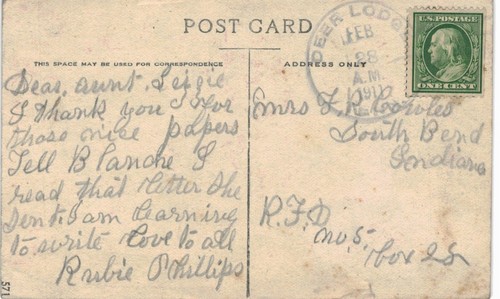 POST CARD
THIS SPACE MAY BE USED FOR CORRESPONDENCE
ADDRESS ONLY
DEER LODGE
FEB
28
A.M.
U.S. POSTAGE
ONE CENT
Dear aunt Lizzie
I thank you for
those nice papers
Tell Blanche I
read that letter she
sent. I am learning
to write love to all
Rubie Phillips
Mrs F. R.
South Bend
Indiana
R.F.D
no. 5.
box 28
571